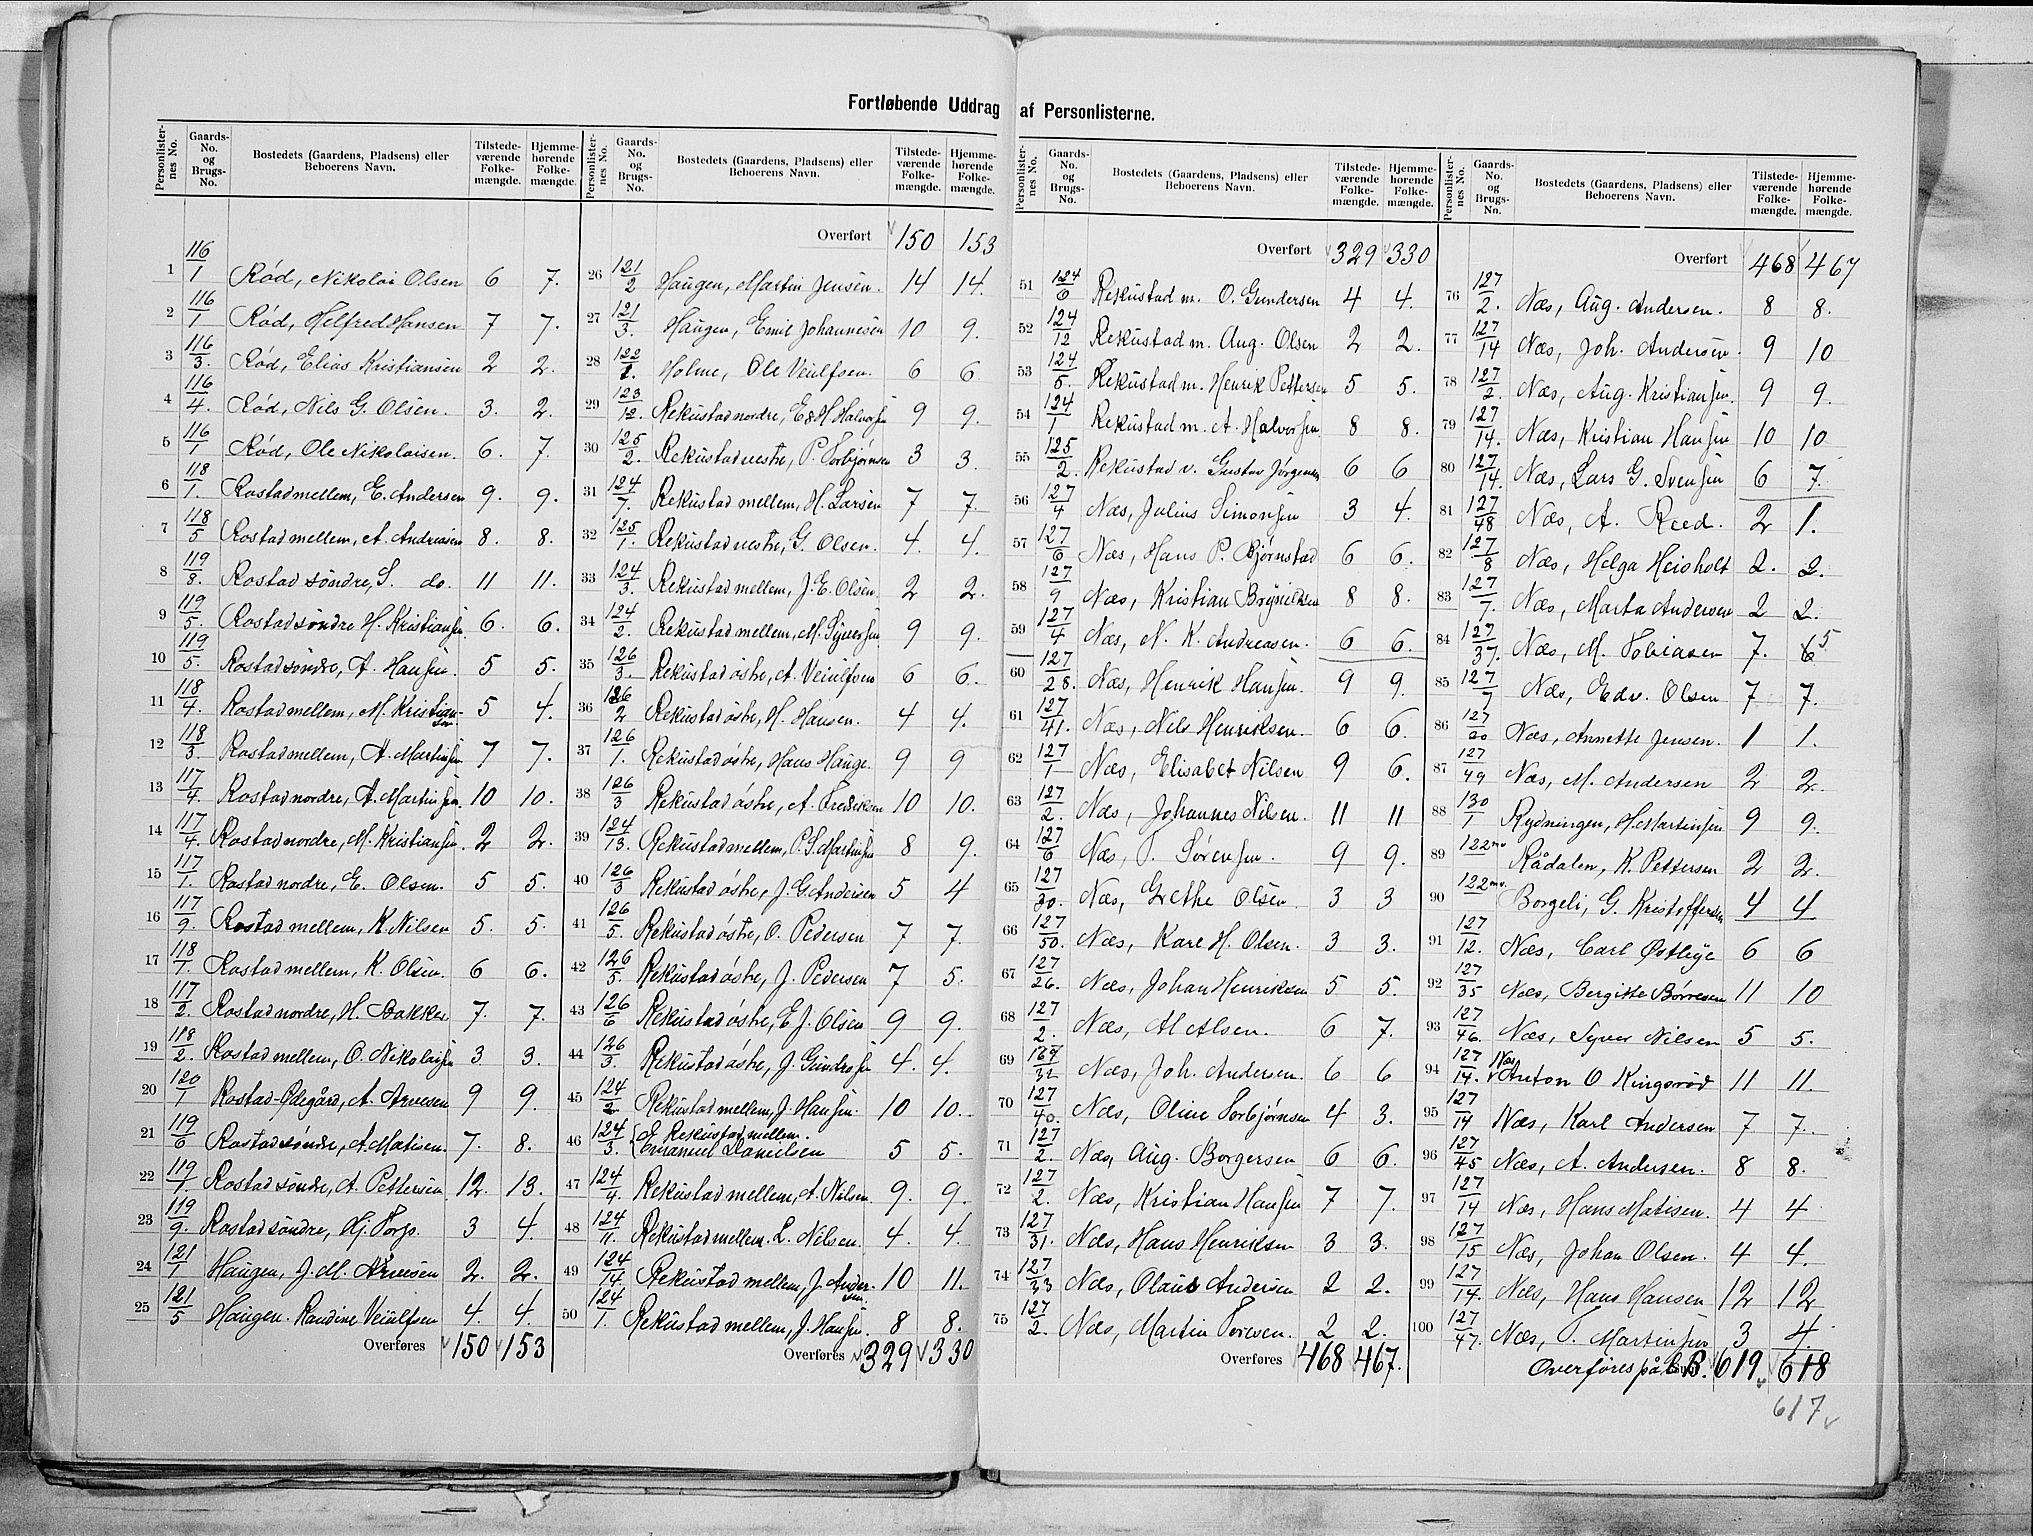 Fortløbende Uddrag af Personlisterne.
Personlister-nes No. Gaards-No. og Brugs-No. Bostedets (Gaardens, Pladsens) eller Beboerens Navn. Tilstede-værende Folke-mængde. Hjemme-hørende Folke-mængde.
1 116/1 Rød, Nikolai Olsen 6 7.
2 116/1 Rød, Helfred Hansen 7 7.
3 116/3. Rød, Elias Kristiansen 2 2.
4 116/4. Rød, Nils G. Olsen. 3. 2.
5 116/1 Rød, Ole Nikolaisen. 6. 7.
6 118/1. Rostad mellem, E. Andersen 9. 9.
7 118/5 Rostad mellem, A. Andreasen 8. 8.
8 119/8. Rostad søndre, S. do. 11 11.
9 119/5. Rostad søndre H. Kristiansen 6. 6.
10 119/5. Rostad søndre, A. Hansen. 5 5.
11 118/4. Rostad mellem, M. Kristiansen 5 4.
12 118/3. Rostad mellem, A. Martinsen 7 7.
13 117/4. Rostad nordre, A. Martinsen. 10 10.
14 117/4. Rostad nordre, M. Kristiansen. 2 2.
15 117/1. Rostad nordre, E. Olsen. 5 5.
16 117/9. Rostad mellem, K. Nilsen 5. 5.
17 118/1. Rostad mellem, K. Olsen. 6 6.
18 117/2. Rostad nordre, H. Bakker 7. 7.
19 118/2. Rostad mellem, O. Nikolaisen 3 3.
20 120/1 Rostad-Ødegård, A. Arvesen 9 9.
21 119/6 Rostad søndre, A. Matisen. 7. 8.
22 119/1 Rostad søndre, A. Pettersen 12. 13.
23 119/9. Rostad søndre, Hj. Torp. 3 4.
24 121/1 Haugen, J. M. Arvesen 2. 2.
25 121/5 Haugen. Randine Veiulfsen 4. 4.
Overføres 150 153
Personlister-nes No. Gaards-No. og Brugs-No. Bostedets (Gaardens, Pladsens) eller Beboerens Navn. Tilstede-værende Folke-mængde. Hjemme-hørende Folke-mængde.
Overført 150 153
26 121/2 Haugen, Martin Jensen. 14 14.
27 121/3. Haugen, Emil Johannesen 10 9.
28 122/1. Holme, Ole Veiulfsen. 6 6
29 123/12. Rekustad nordre, E & H Halvorsen 9 9.
30 125/2. Rekustad vestre, P. Torbjørnsen 3 3.
31 124/7. Rekustad mellem, H. Larsen 7 7.
32 125/1. Rekustad vestre, G. Olsen. 4. 4.
33 124/3. Rekustad mellem, J. E. Olsen 2 2.
34 124/2. Rekustad mellem, M. Syversen 9 9.
35 126/3. Rekustad østre, A. Veiulfsen 6 6.
36 126/2 Rekustad østre, H. Hansen. 4 4.
37 126/1. Rekustad østre, Hans Hauge. 9 9
38 126/3 Rekustad østre, A. Fredriksen 10 10.
39 124/13. Rekustad mellem, P. S. Martinsen 8 9.
40 126/3 Rekustad østre, J. G Andersen 5 4
41 126/5. Rekustad østre, O. Pedersen 7 7.
42 126/5. Rekustad østre, J. Pedersen 7 5.
43 126/6 Rekustad østre, E J. Olsen 9 9.
44 126/3. Rekustad østre, J. Gundrosen 4. 4.
45 124/2. Rekustad mellem, J. Hansen. 10 10.
46 124/3. Rekustad mellem. Emanuel Danielsen 5 5.
47 124/4. Rekustad mellem, A. Nilsen 9. 9.
48 124/11. Rekustad mellem. L. Nilsen. 4. 4.
49 124/14. Rekustad mellem, J. Andersen 10 11.
50 124/1. Rekustad mellem, J. Hansen 8 8.
Overføres 329 330
Personlister-nes No. Gaards-No. og Brugs-No. Bostedets (Gaardens, Pladsens) eller Beboerens Navn. Tilstede-værende Folke-mængde. Hjemme-hørende Folke-mængde.
Overført 329 330
51 124/6 Rekustad m. O. Gundersen 4 4.
52 124/12 Rekustad m. Aug. Olsen 2 2.
53 124/5. Rekustad m. Henrik Pettersen 5 5.
54 124/1 Rekustad m. A. Halvorsen. 8 8.
55 125/2. Rekustad v. Gustav Jørgensen 6 6
56 127/4 Næs, Julius Simonsen 3 4.
57 127/6 Næs, Hans P. Bjørnstad 6 6.
58 127/9 Næs, Kristian Brynildsen 8 8.
59 127/4 Næs, N. K. Andreasen. 6 6.
60 127/28. Næs, Henrik Hansen. 9 9.
61 127/41. Næs, Nils Henriksen. 6 6.
62 127/1 Næs, Elisabet Nilsen 9 6.
63 127/2. Næs, Johannes Nilsen. 11 11
64 127/6 Næs, T. Sørensen. 9 9.
65 127/30. Næs, Grethe Olsen. 3 3
66 127/50. Næs, Karl H. Olsen. 3 3.
67 127/26. Næs, Johan Henriksen 5 5.
68 127/2. Næs, Al Alsen. 6 7.
69 127/32 Næs, Joh. Andersen. 6 6
70 127/40. Næs, Oline Torbjørnsen 4 3.
71 127/2. Næs, Aug. Borgersen 6 6.
72 127/2. Næs, Kristian Hansen 7 7.
73 127/31. Næs, Hans Henriksen 3 3.
74 127/33 Næs, Olaus Andersen 2 2.
75 127/2. Næs, Martin Toresen. 2 2.
Overføres 468 467.
Personlister-nes No. Gaards-No. og Brugs-No. Bostedets (Gaardens, Pladsens) eller Beboerens Navn. Tilstede-værende Folke-mængde. Hjemme-hørende Folke-mængde.
Overført 468 467
76 127/2. Næs, Aug. Andersen. 8 8.
77 127/14 Næs, Joh. Andersen. 9 10
78 127/2. Næs, Aug. Kristiansen. 9 9.
79 127/14. Næs, Kristian Hansen 10 10
80 127/14. Næs, Lars G. Svensen 6 7.
81 127/48 Næs, A. Reed. 2 1.
82 127/8 Næs, Helga Heisholt 2. 2.
83 127/7. Næs, Marta Andersen 2 2.
84 127/37. Næs, M. Tobiasen 7. 6 5
85 127/7 Næs, Edv. Olsen 7 7.
86 127/20 Næs, Annette Jensen. 1 1.
87 127/49 Næs, M. Andersen 2 2.
88 130/1 Rydningen, H. Martinsen 9 9.
89 122 Rådalen, K. Pettersen 2 2.
90 122 Borgeli, G. Kristoffersen 4 4
91 127/12. Næs, Carl Østlye 6 6
92 127/35 Næs, Bergitte Børresen 11 10
93 127/46. Næs, Syver Nilsen 5 5.
94 127/14. Næs Anton O Kingsrød 11 11.
95 127/14 Næs, Karl Andersen 7 7.
96 127/45 Næs, A. Andersen. 8 8.
97 127/14 Næs, Hans Matisen. 4 4
98 127/15 Næs, Johan Olsen. 4 4.
99 127/14. Næs, Hans Hansen 12 12
100 127/47. Næs, T. Martinsen 3 4.
Overføres på B. 619 618
617